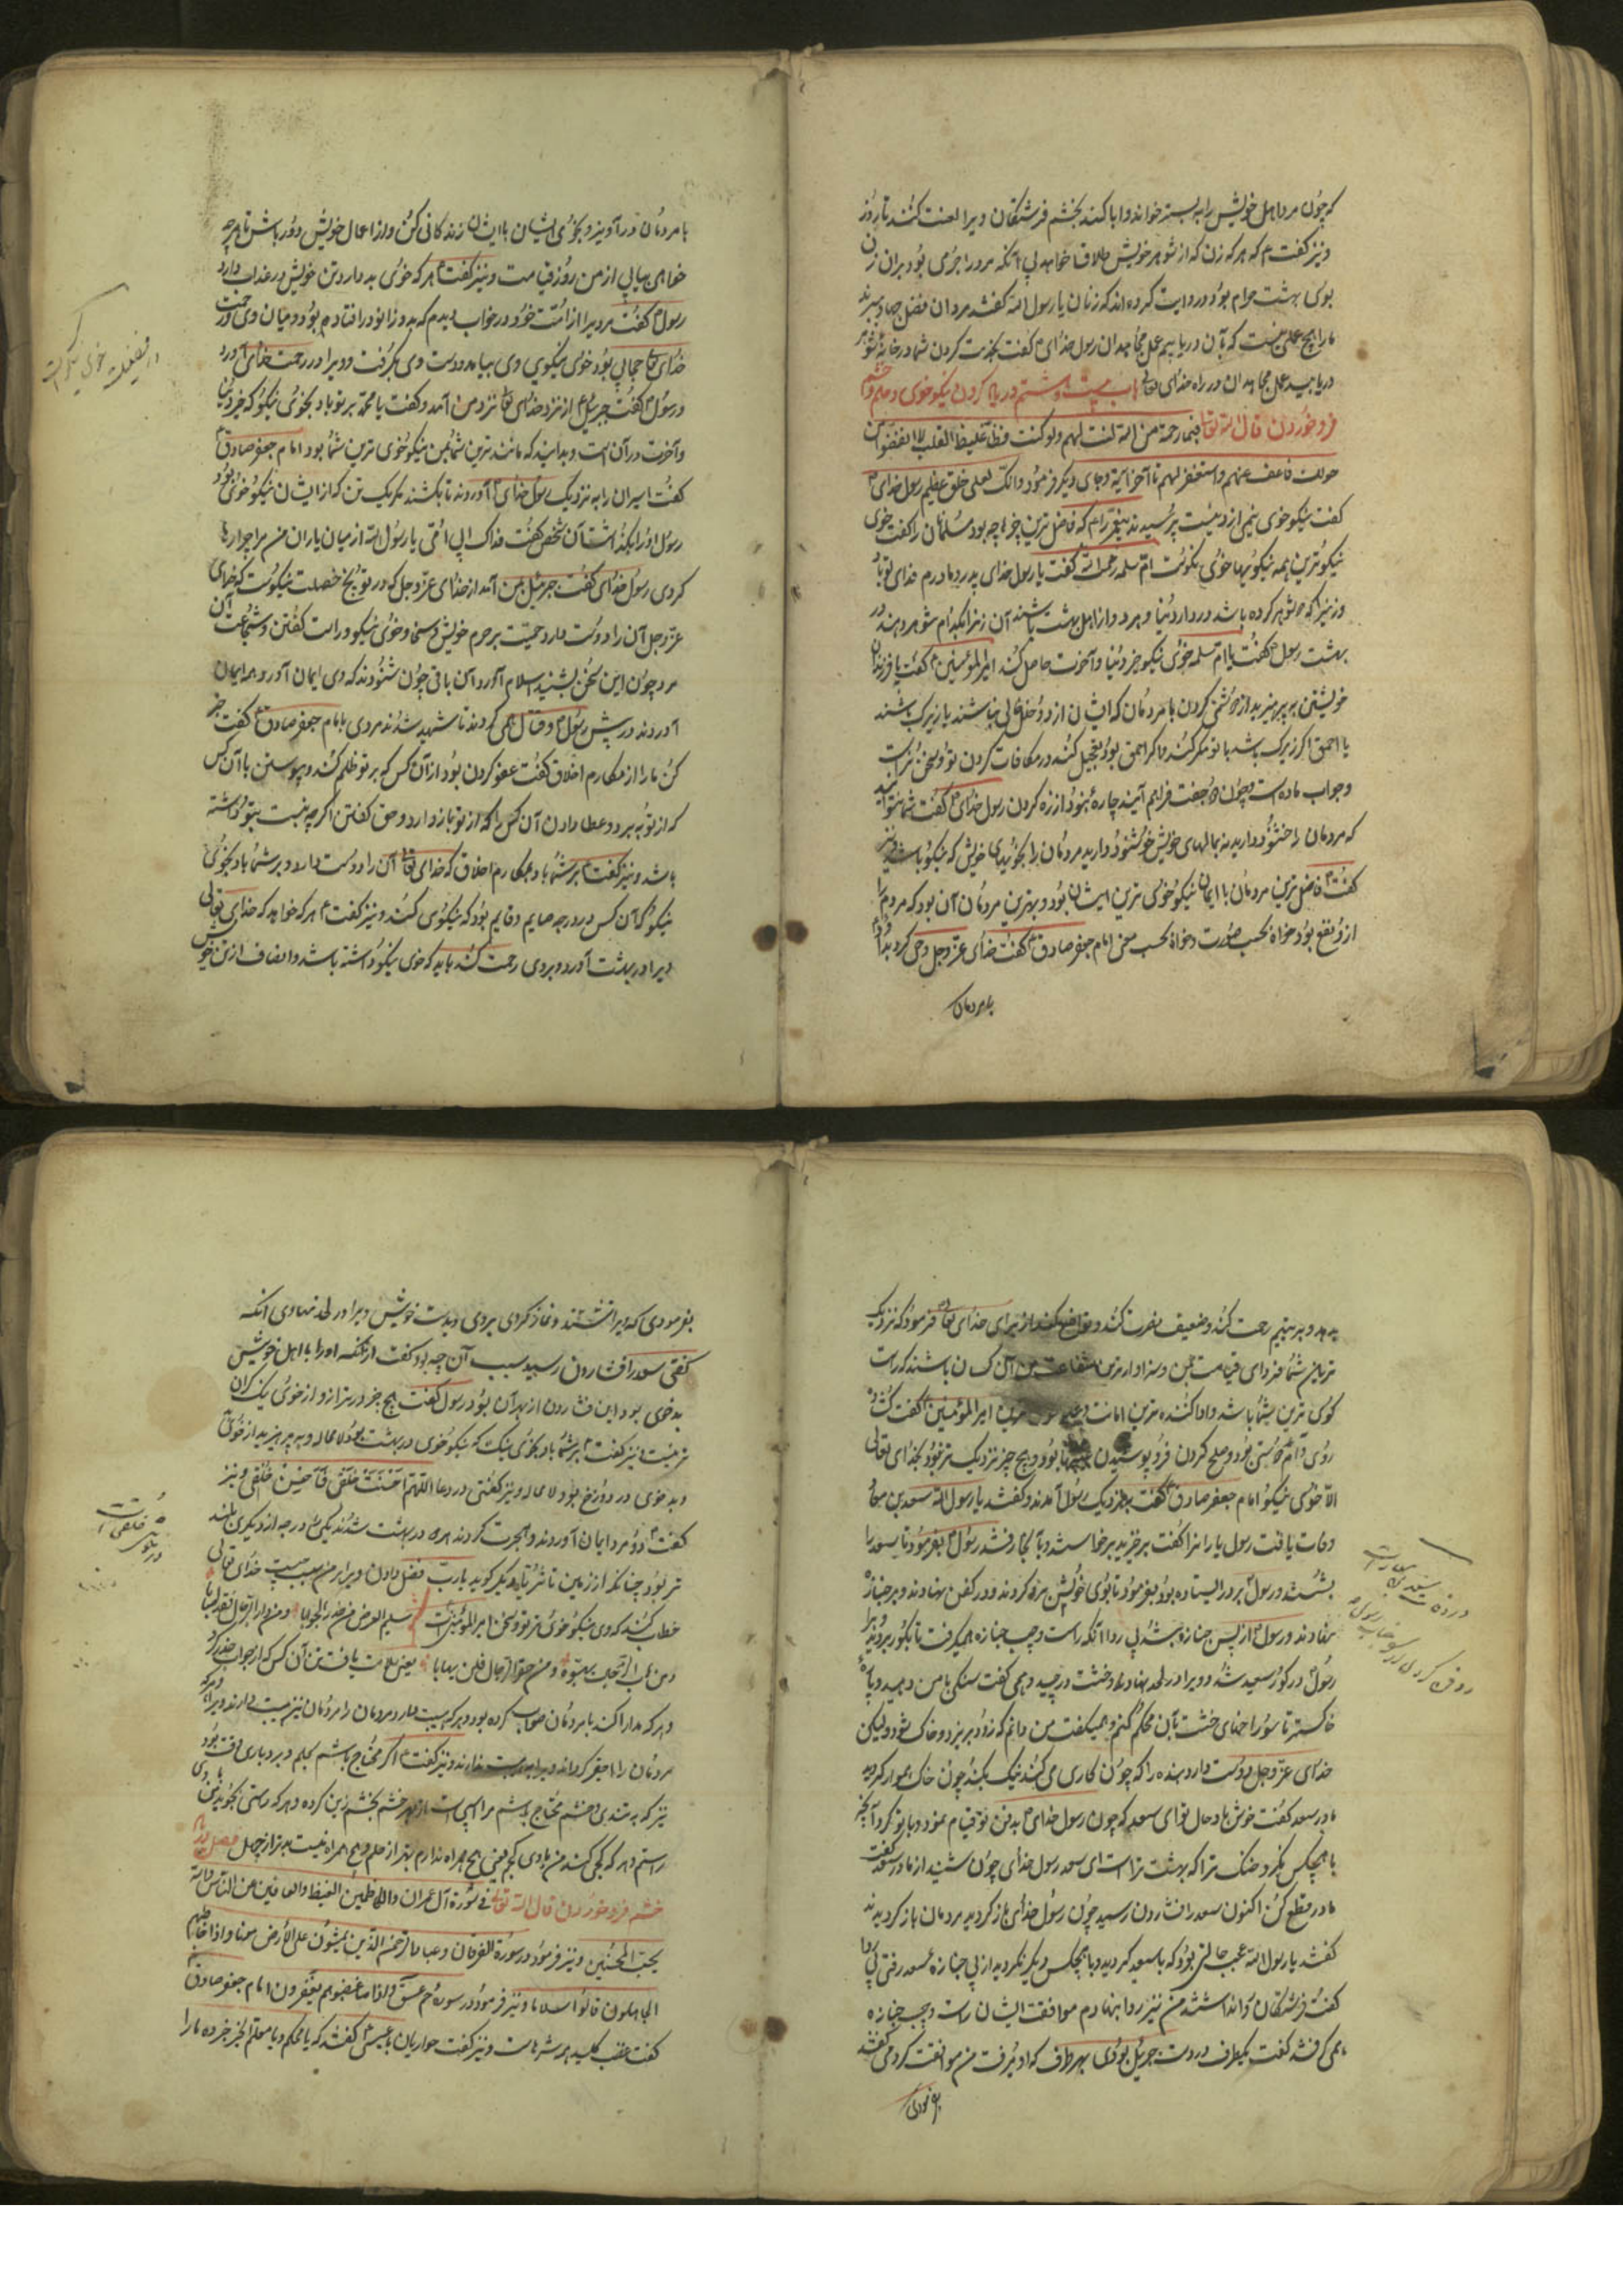 که چون مرد اهل خویش را به بستر خواند و ابا کند بخشم فرشتگان ویرا لعنت کنند تا روز
و نیز گفت که هر که زن که از شوهر خویش طلاق خواهد بی آنکه مرد را جرمی بود بران زن
بوی بهشت حرام بود و روایت کرده اند که زنان یا رسول الله گفتند مردان فضل جهاد ببرند
ما را هیچ عملی هست که بآن دریابیم عمل مجاهدان رسول خدای گفت بخدمت کردن شما در خانه شوهر
دریابید عمل مجاهدان در راه خدای تعالی باب بیست و هشتم در یاد کردن نیکو خوی و حلم و خشم
فرو خوردن قال الله تعالی فبما رحمة من الله لنت لهم ولو کنت فظا غلیظ القلب لانفضوا من
حولک فاعف عنهم واستغفر لهم تا آخر آیة و جای دیگر فرمود وانک لعلی خلق عظیم رسول خدای
گفت نیکو خوی نیمی از دینست پرسیدند پیغمبر را که فاضل ترین چیزها چه بود مسلمان را گفت خوی
نیکو ترین همه نیکوئیها خوی نکوست ام سلمه رحمها الله گفت یا رسول خدای پدر و مادرم فدای تو باد
و زنیرا که دو شوهر کرده باشد در دار دنیا و هر دو از اهل بهشت باشند آن زن را بکدام شوهر دهند در
بهشت رسول گفت یا ام سلمه خوی نیکو خیر دنیا و آخرت حاصل کند امیر المؤمنین گفت یا فرزندان
خویشتن به پرهیزید از دشمنی کردن با مردمان که ایشان از دو حال خالی نباشند یا زیرک باشند
یا احمق اگر زیرک باشد با تو مکر کند و اگر احمق بود تعجیل کند در مکافات کردن تو و سخن نر است
و جواب ماده است و چون دو جفت فراهم آیند چاره نبود از زه کردن رسول خدای گفت شما نتوانید
که مردمان را خشنود دارید نه بمالهای خویش خوشنود دارید مردمان را بخوئیهای خویش که نیکو باشد و نیز
گفت فاضل ترین مردمان با ایمان نیکو خوی ترین ایشان بود و بهترین مردمان آن بود که مردم را
از و نفع بود خواه بحسب صورت و خواه بحسب معنی امام جعفر صادق گفت خدای عز و جل وحی کرد بداود
با مردمان
با مردمان درآویز و بخوی ایشان با ایشان زندگانی کن و از اعمال خویش دور باش تا هر چه
خواهی بیابی از من روز قیامت و نیز گفت هر که خوی بد دارد تن خویش در عذاب دارد
رسول گفت مردیرا از امت خود در خواب دیدم که بدو زانو در افتاده بود و میان وی و رحمت
خدای تعالی حجابی بود خوی نیکوی وی بیامد و دست وی بگرفت و ویرا در رحمت خدای آورد
و رسول گفت جبرئیل از نزد خدای تعالی نزد من آمد و گفت یا محمد بر تو باد بخوی نیکو که خیر دنیا
و آخرت در آن است و بدانید که مانند ترین شما بمن نیکو خوی ترین شما بود امام جعفر صادق
گفت اسیران را به نزدیک رسول خدای آوردند تا بکشند مگر یک تن که از ایشان نیکو خوی بود
رسول او را بگذاشت آن شخص گفت فداک ابی و امی یا رسول الله از میان یاران من مرا چرا رها
کردی رسول خدای گفت جبرئیل بمن آمد از خدای عز و جل که در تو پنج خصلت نیکوست که خدای
عز و جل آن را دوست دارد حمیت بر حرم خویش و سخا و خوی نیکو و راست گفتن و شجاعت آن
مرد چون این سخن بشنید اسلام آورد آن باقی چون شنودند که وی ایمان آورد همه ایمان
آوردند در پیش رسول و قتال همی کردند تا شهید شدند مردی با امام جعفر صادق گفت خبر
کن ما را از مکارم اخلاق گفت عفو کردن بود از آن کس که بر تو ظلم کند و پیوستن با آن کس
که از تو به برد و عطا دادن آن کس را که از تو باز دارد و حق گفتن اگر چه نسبت بتو داشته
باشد و نیز گفت بر شما باد بمکارم اخلاق که خدای تعالی آن را دوست دارد و بر شما باد بخوی
نیکو که آن کس بدرجه صایم و قایم بود که نیکوی کند و نیز گفت هر که خواهد که خدای تعالی
ویرا در بهشت آورد و بر وی رحمت کند باید که خوی نیکو داشته باشد و انصاف از تن خویش
در فضیلت خوی نیکو است
بدهد و بر یتیم رحمت کند و ضعیف نصرت کند و تواضع کند از برای خدای تعالی فرمود که نزدیک
ترین شما فردای قیامت بمن و سزاوارترین شفاعت من آن کسان باشند که راست
گوی ترین شما باشد و ادا کننده ترین امانت و امیر المؤمنین گفت گشاده
روی دام دوستی بود و صلح کردن فرو پوشیدن عیبها بود و هیچ چیز نزدیک تر نبود بخدای تعالی
الا خوی نیکو امام جعفر صادق گفت بنزدیک رسول آمدند و گفتند یا رسول الله سعد بن معاذ
وفات یافت رسول یاران را گفت برخیزید برخاستند و بآنجا رفتند رسول بفرمود تا سعد را
بشستند و رسول بر در ایستاده بود بفرمود تا بوی خوش بره کردند و در کفن نهادند و بر جنازه
نهادند و رسول از پس جنازه میشد بی ردا گاه راست و چپ جنازه همیگرفت تا بگور بردند ویرا
رسول در گور سعید شد و ویرا در لحد نهاد و خشت در چید و همی گفت سنگی بمن دهید و پاره
خاکستر تا سوراخهای خشت بآن محکم کنم و همیگفت من دانم که زود بریزد و خاک شود ولیکن
خدای عز و جل دوست دارد بنده را که چون کاری می کند نیک بکند چون خاک هموار کردند
مادر سعد گفت خوش باد حال تو ای سعد که چون رسول خدای بدفن تو قیام نمود و با تو کرد آنچه
با هیچکس نکرد خنک ترا که بهشت تراست ای سعد رسول خدای چون شنید از مادر سعد گفت
مادر قطع مکن اکنون سعد را فشاردن رسید چون رسول خدای بازگردید مردمان بازگردیدند
گفتند یا رسول الله عجب حالتی بود که با سعید کردید و با هیچکس دیگر نکردید از پی جنازه سعد رفتی بی ردا
گفت فرشتگان ردا نداشتند من نیز ردا بنهادم موافقت ایشان راست و چپ جنازه
همی گرفتند گفت یکطرف در دست جبرئیل بودی بهر طرف که او میرفت من موافقت کردمی گفتند
بفرمودی
در ذکر سعد بن معاذ
دفن کردن رسول
بفرمودی که ویرا شستند و نماز کردی بر وی و بدست خویش ویرا در لحد نهادی آنکه
گفتی سعد را فشاردن رسید سبب آن چه بود گفت از آنکه او را با اهل خویش
بد خوی بود این فشاردن از بهر آن بود رسول گفت هیچ چیز در ترازو از خوی نیک گران
تر نیست و نیز گفت بر شما باد بخوی نیک که نیکو خوی در بهشت بود لا محاله و به پرهیزید از خوی بد
و بد خوی در دوزخ بود لا محاله و نیز گفتی در دعا اللهم احسنت خلقی فاحسن خلقی و نیز
گفت دو مرد ایمان آوردند و هجرت کردند هر دو در بهشت شدند یکی را درجه از دیگری بلند
تر بود چنانکه از زمین تا ثریا دیگر گوید یا رب فضل دادن ویرا بر من سبب چیست خدای تعالی
خطاب کند که وی نیکو خوی تر از تو و سخن امیر المؤمنین است سلیم العرض من حذر الجوابا ومن دار الرجال فقد اصابا
ومن هاب الرجال تهیبوه ومن حقر الرجال فلن یهابا یعنی سلامت یافت تن آن کس که از جواب حذر کرد
و هر که مدارا کند با مردمان صواب کرده بود و هر که هیبت دارد مردمان را مردمان نیز هیبت دارند ویرا و هر که
مردمان را حقیر گرداند ویرا هیبت ندارند و نیز گفت اگر محتاج باشم بحلم و بردباری وقت بود
نیز که به تندی و خشم محتاج باشم مرا اسپی است از بهر خشم بخشم زین کرده و هر که راستی بجوید با وی
راستم و هر که کجی کند من با وی کجم یعنی هیچ همراه ندارم بهتر از حلم و هیچ همراه نیست بدتر از جهل فصل بدان
خشم فرو خوردن قال الله تعالی فی سورة آل عمران والکاظمین الغیظ والعافین عن الناس والله
یحب المحسنین و نیز فرمود در سورة الفرقان وعباد الرحمن الذین یمشون علی الارض هونا واذا خاطبهم
الجاهلون قالوا سلاما و نیز فرمود در سوره حم عسق واذا ما غضبوا هم یغفرون امام جعفر صادق
گفت غضب کلید همه شرهاست و نیز گفت حواریان با عیسی گفتند که یا محکم و یا معلم الخیر خبر ده ما را